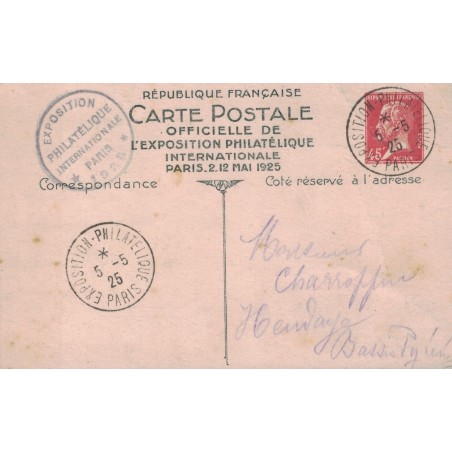 RÉPUBLIQUE FRANÇAISE
CARTE POSTALE
OFFICIELLE DE
L'EXPOSITION PHILATÉLIQUE
INTERNATIONALE
PARIS.2.12 MAI 1925
EXPOSITION
PHILATÉLIQUE
INTERNATIONALE
PARIS
* 1925 *
EXPOSITION-PHILATELIQUE
*
5 -5
25
PARIS
45c
Correspondance
Coté réservé à l'adresse
EXPOSITION-PHILATELIQUE
*
5 -5
25
PARIS
Monsieur
Charroppin
Hendaye
Basses Pyr